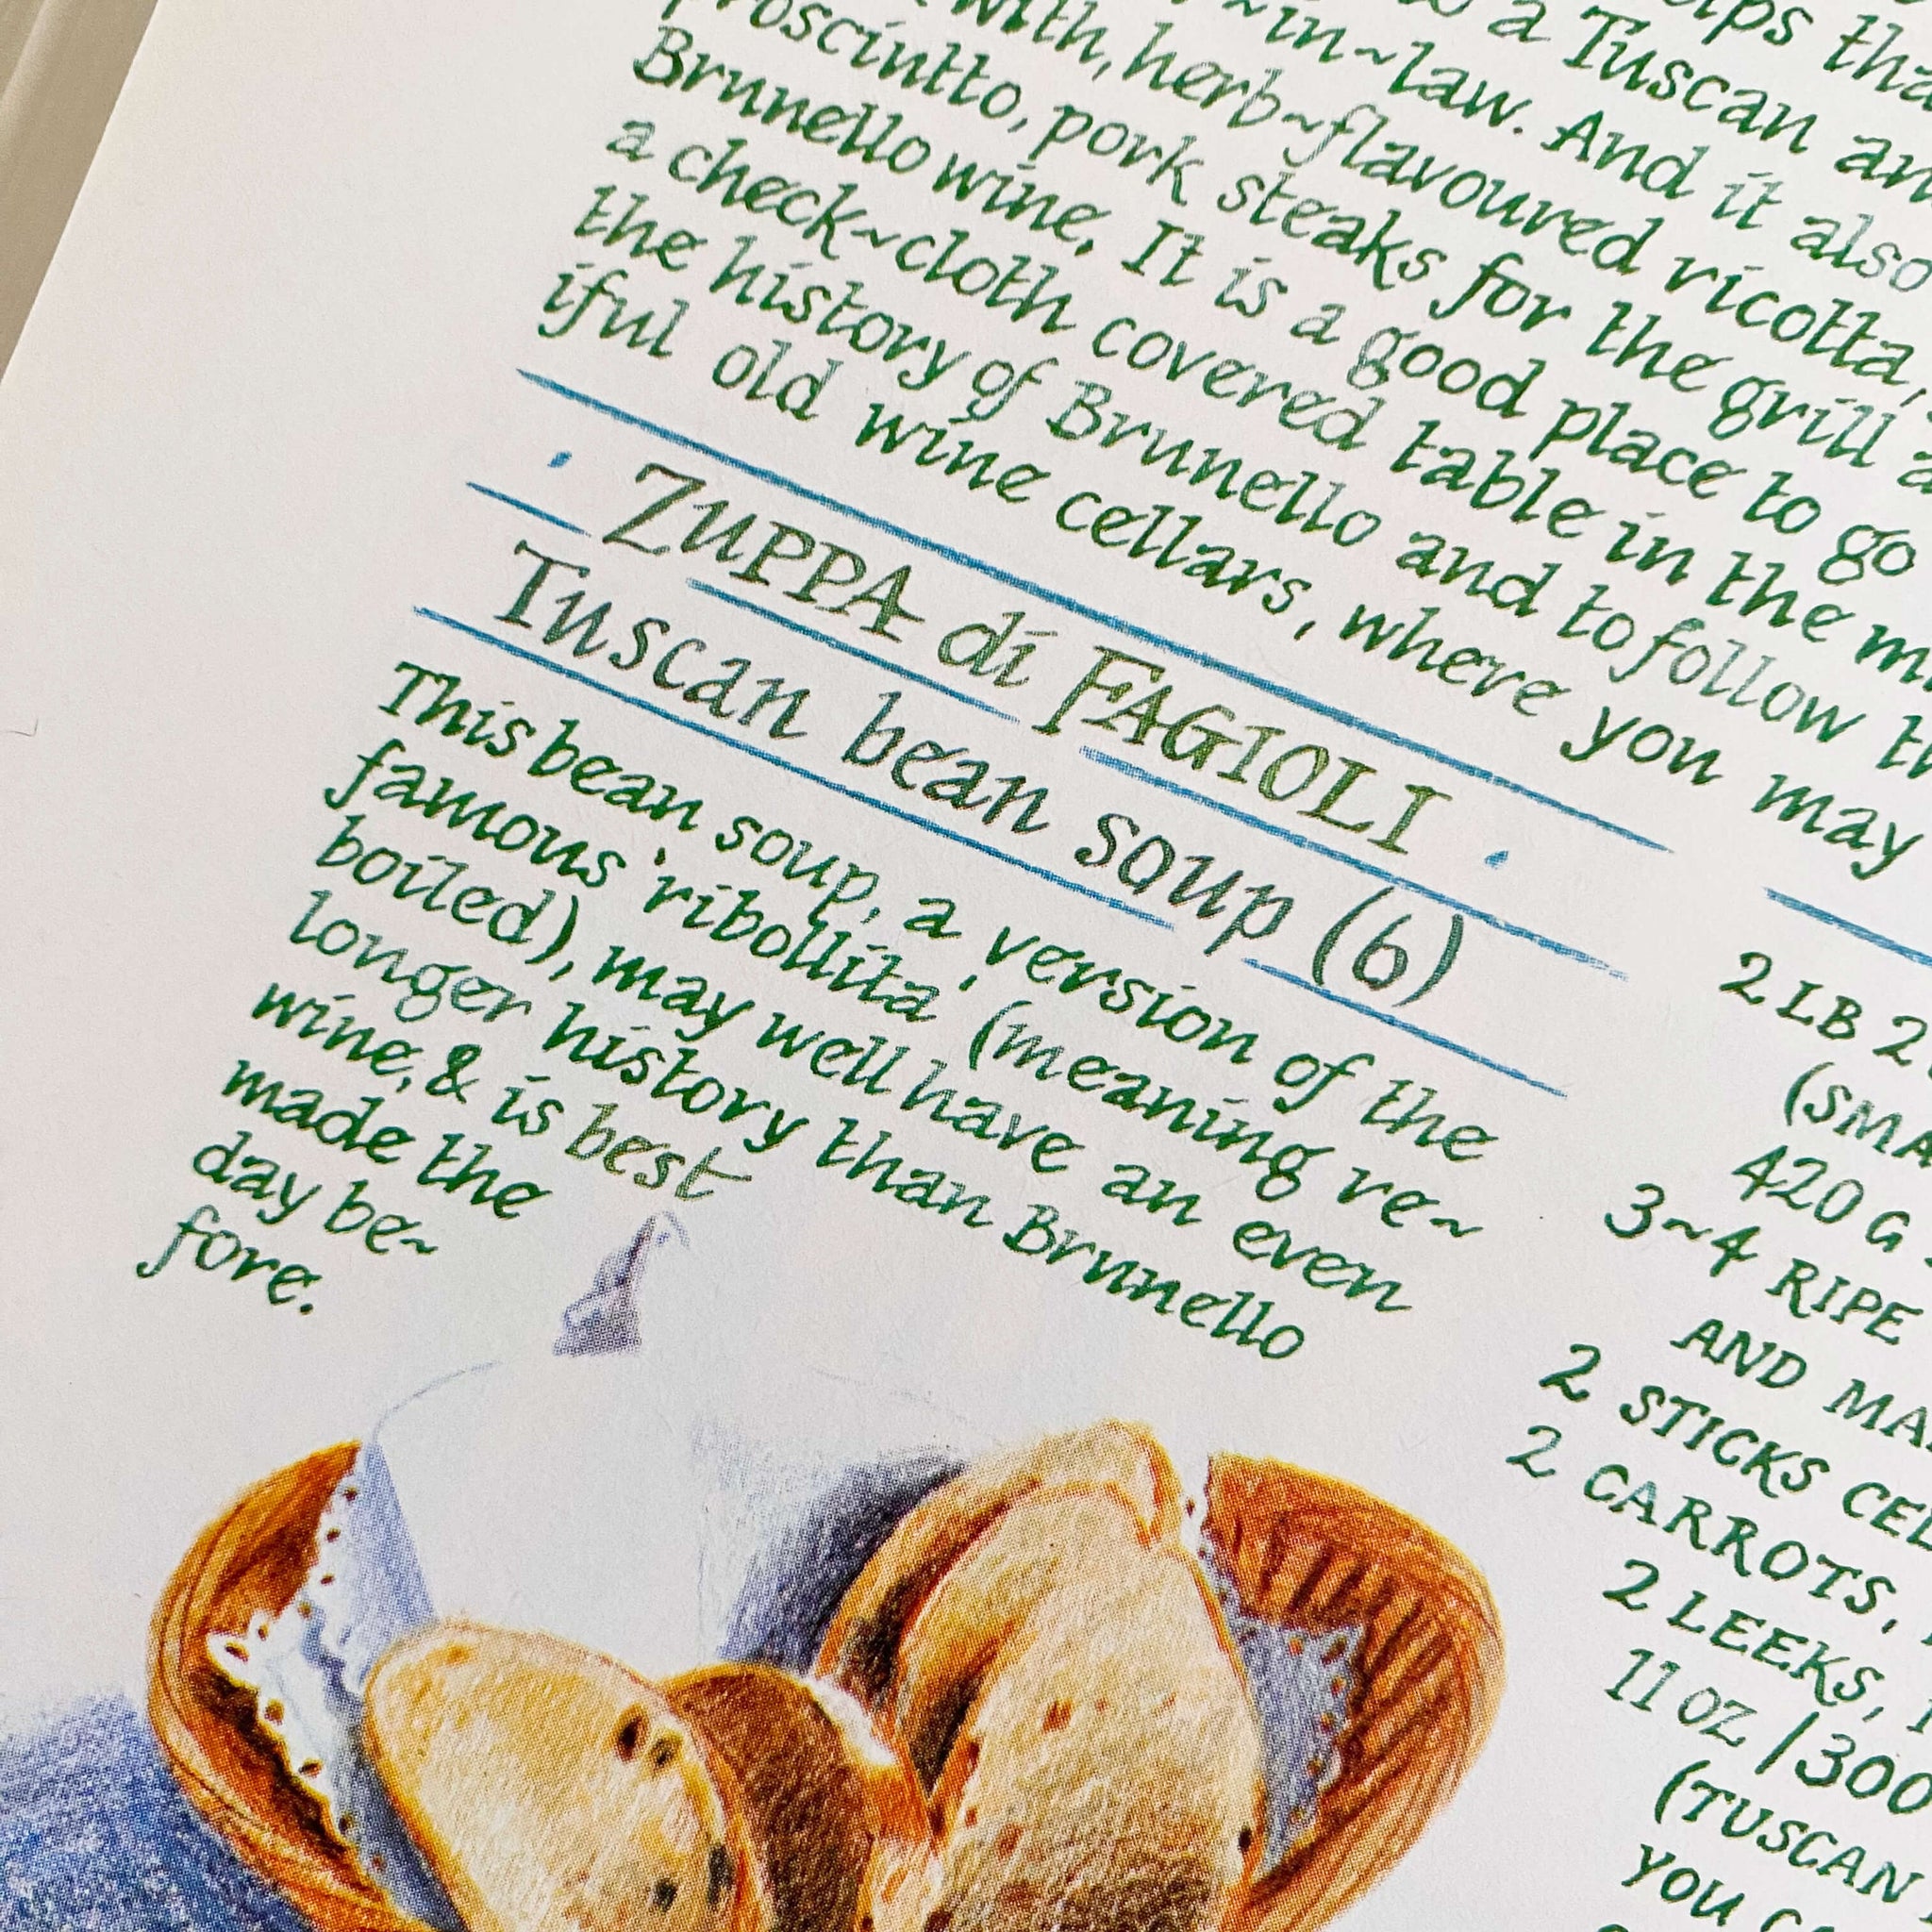 tha
a Tuscan an
~in~law. And it also
with, herb~flavoured ricotta,
prosciutto, pork steaks for the grill a
Brunello wine. It is a good place to go
a check~cloth covered table in the m
the history of Brunello and to follow th
iful old wine cellars, where you may
· ZUPPA di FAGIOLI ·
Tuscan bean soup (6)
This bean soup, a version of the
famous 'ribollita' (meaning re~
boiled), may well have an even
longer history than Brunello
wine, & is best
made the
day be~
fore.
2 LB 2
(SMA
420 G
3~4 RIPE
AND MA
2 STICKS CEL
2 CARROTS,
2 LEEKS,
11 OZ / 300
(TUSCAN
YOU